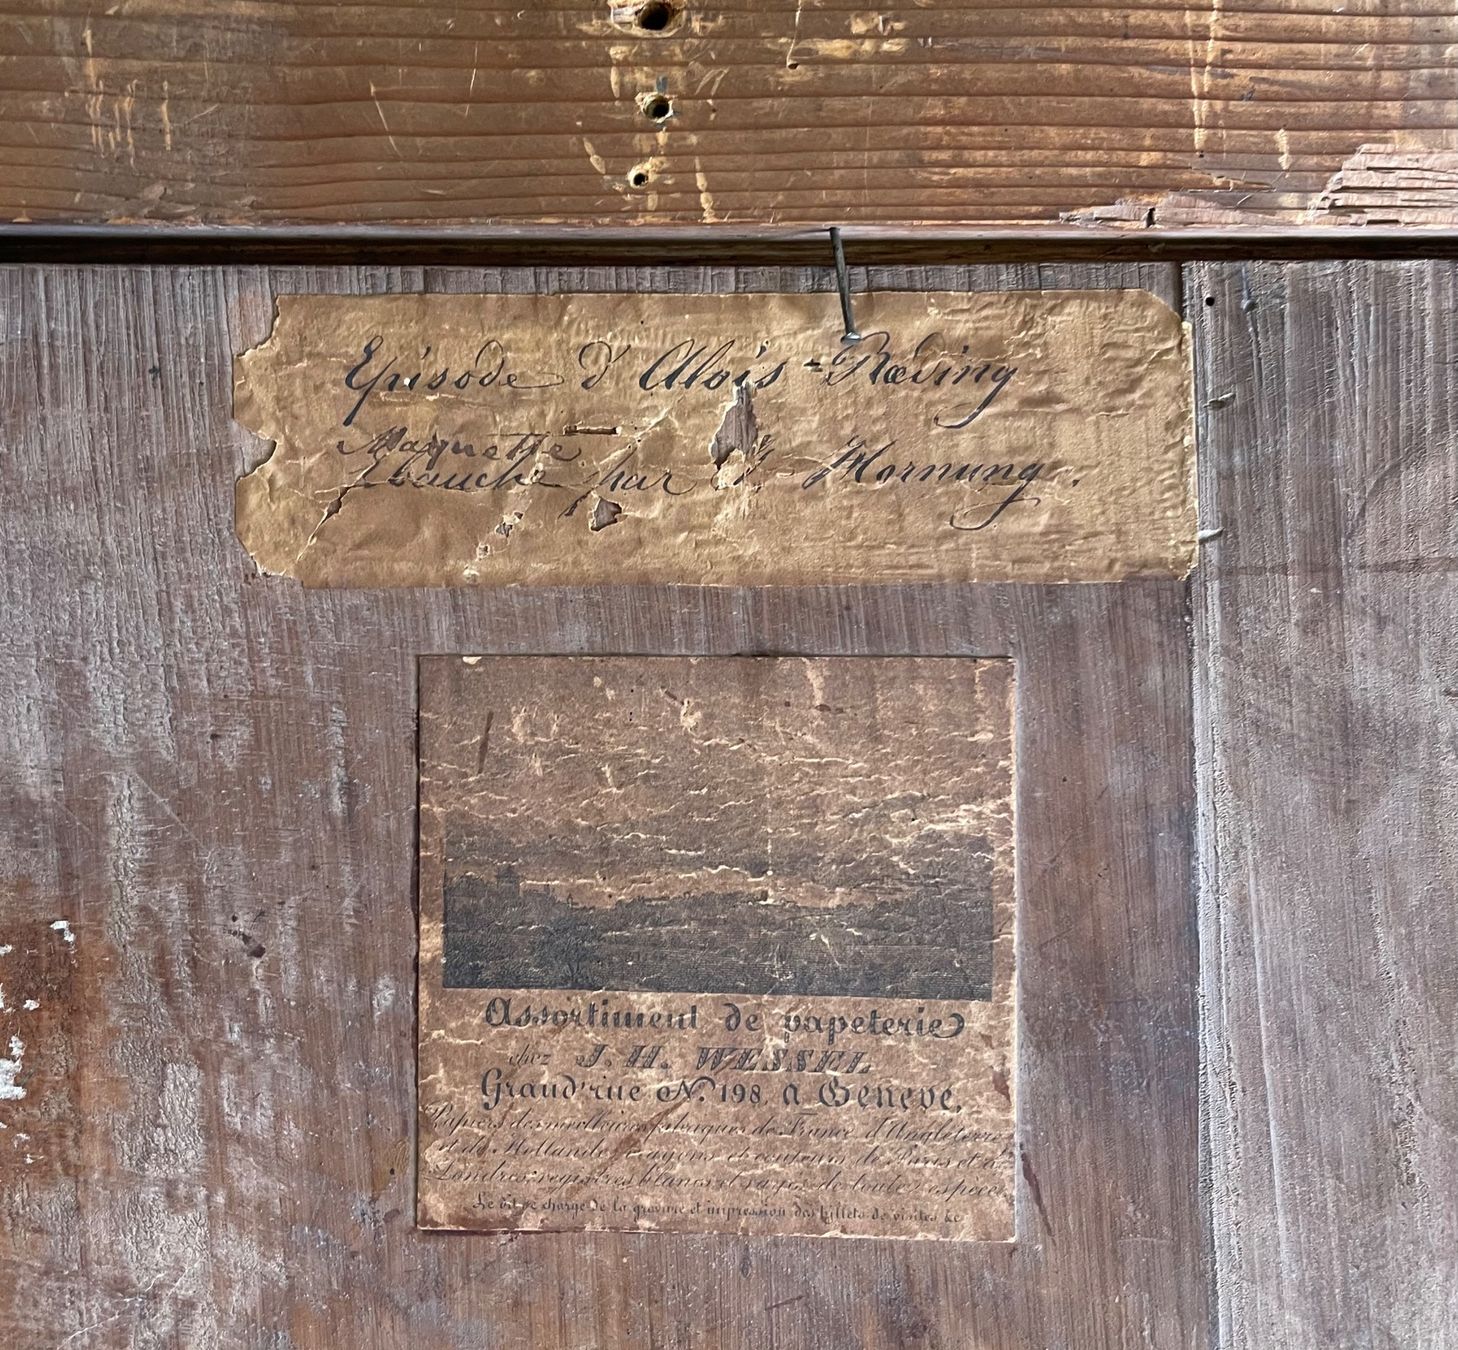 Episode d'Alois-Rœding
Maquette
Ebauche par J. Hornung.
Assortiment de papeterie
chez J. H. WESSEL
Grand'rue N.º 198, à Genève.
Papiers des meilleures fabriques de France d'Angleterre
et de Hollande, crayons et couleurs de Paris et de
Londres, registres blancs et rayés de toutes espèces
Le dit se charge de la gravure et impression des billets de visites &c